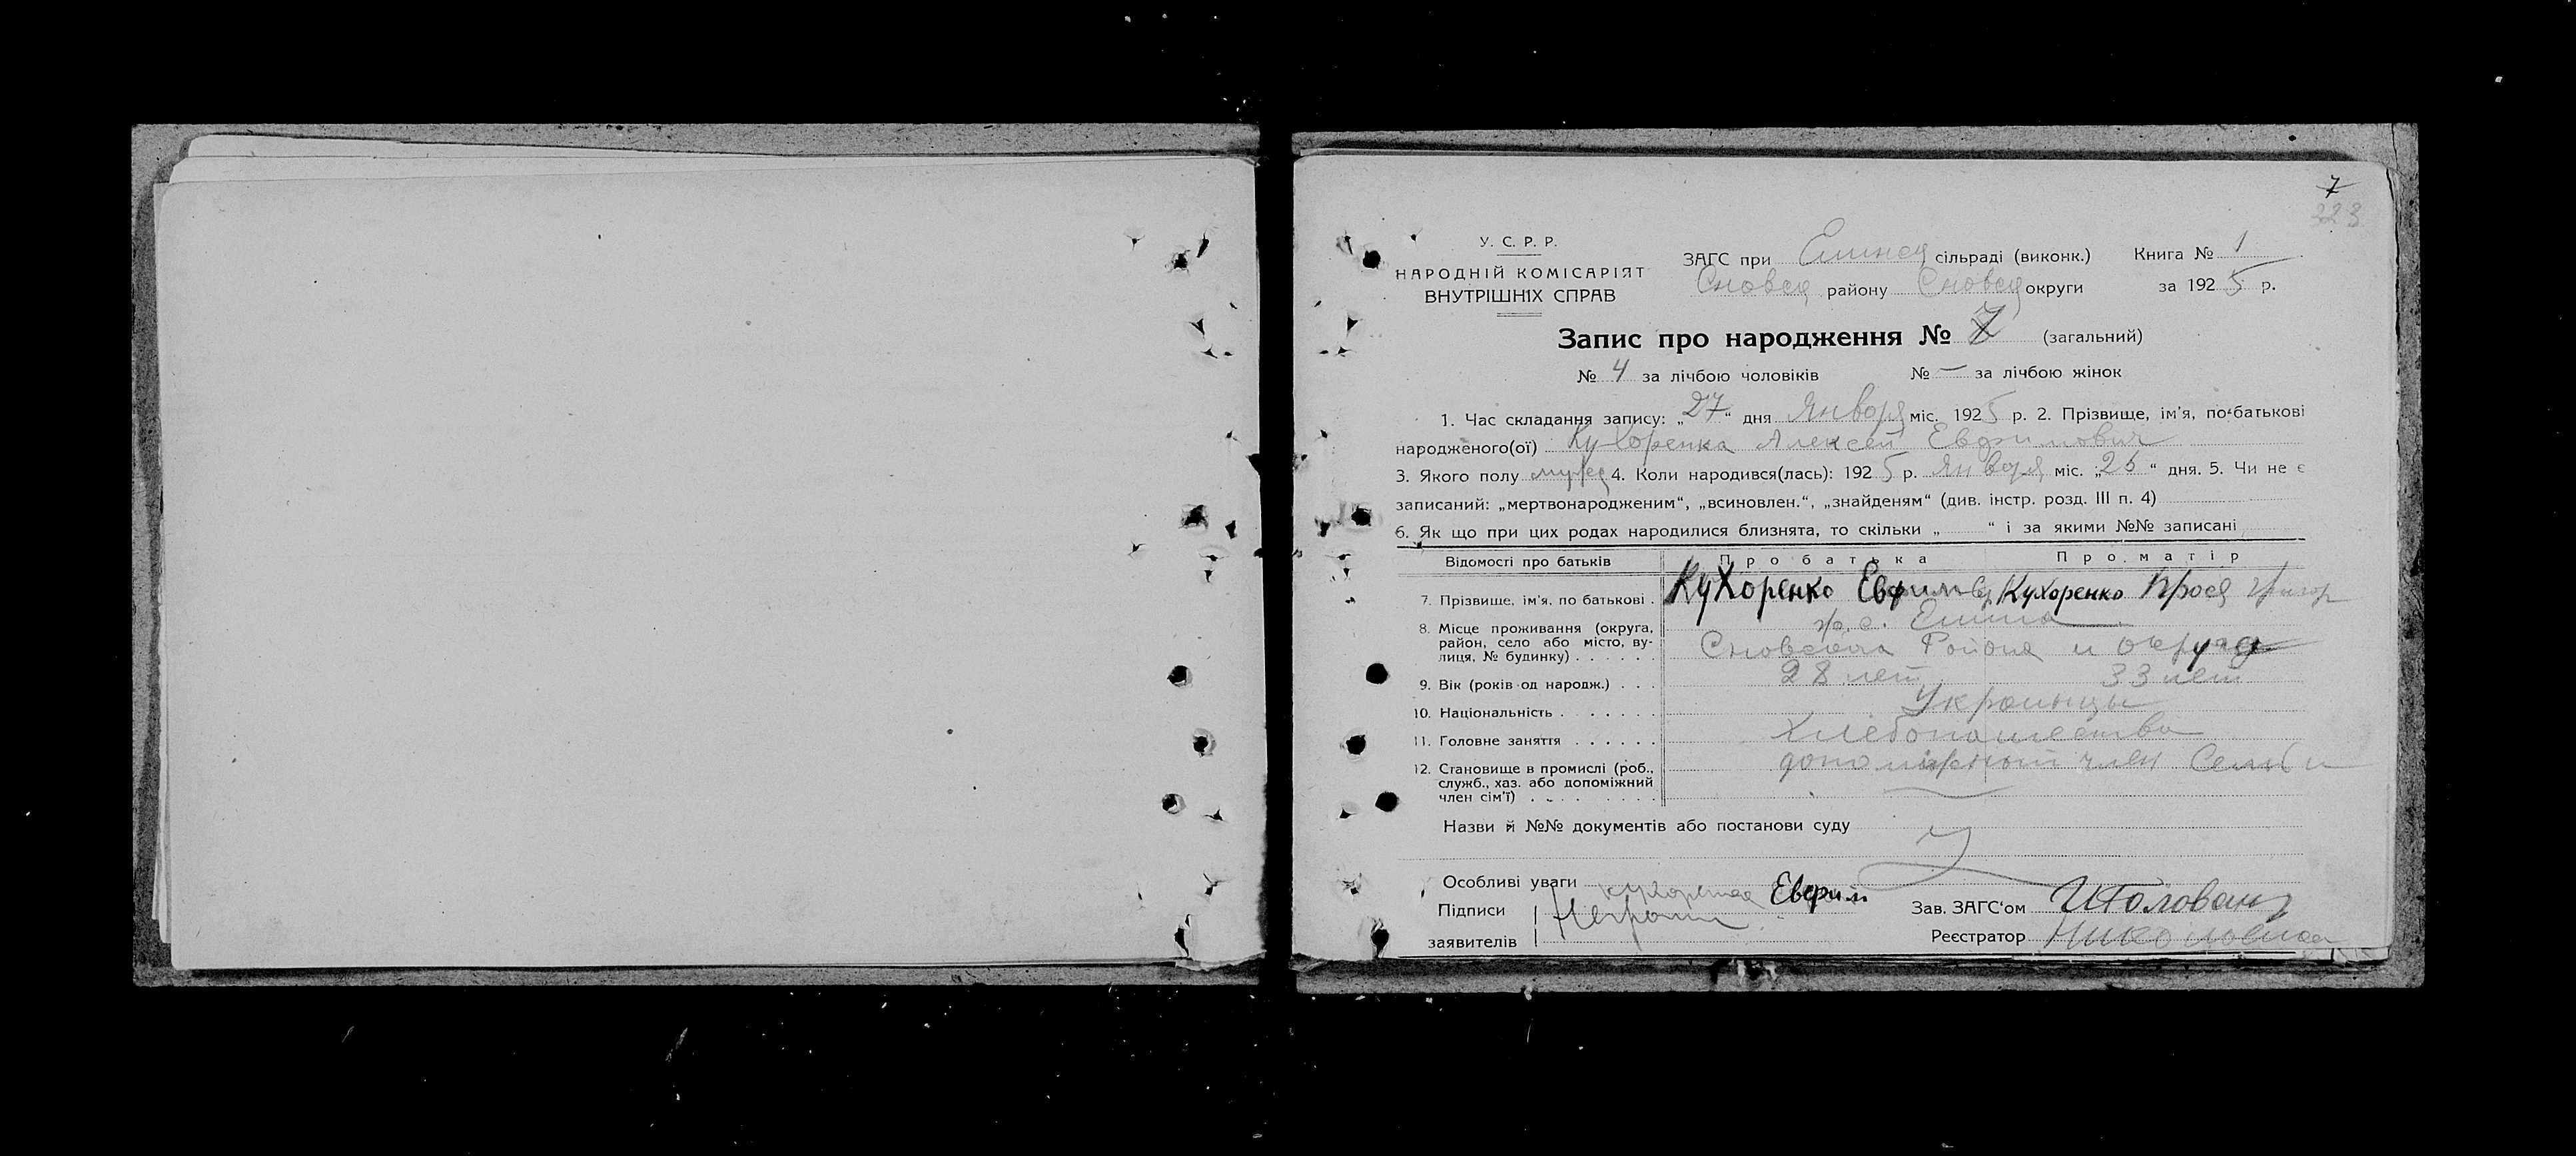 7
223
У. С. Р. Р.
НАРОДНІЙ КОМІСАРІЯТ
ВНУТРІШНІХ СПРАВ
ЗАГС при сільраді (виконк.) Книга № 1
Сновск району Сновск округи за 1925 р.
Запис про народження № 7 (загальний)
№ 4 за лічбою чоловіків № — за лічбою жінок
1. Час складання запису: „27“ дня Января міс. 1925 р. 2. Прізвище, ім'я, по-батькові
народженого(ої) Кухоренка Алексей Евфимович
3. Якого полу мужск 4. Коли народився(лась): 1925 р. Января міс. „26“ дня. 5. Чи не є
записаний: „мертвонародженим“, „всиновлен.“, „знайденям“ (див. інстр. розд. III п. 4)
6. Як що при цих родах народилися близнята, то скільки „ “ і за якими №№ записані
Відомості про батьків Про батька Про матір
7. Прізвище, ім'я, по батькові . Кухоренко Евфим Кухоренко Прося Григор
8. Місце проживання (округа,
район, село або місто, ву-
лиця, № будинку) . . . . . Сновского Района и округа
9. Вік (років од народж.) . . . 28 лет 33 лет
10. Національність . . . . . . . Украинцы
11. Головне заняття . . . . . . Хлебопашества
12. Становище в промислі (роб.,
служб., хаз. або допоміжний
член сім'ї) . . . . . . . . допоміжный член Семьи
Назви й №№ документів або постанови суду
Особливі уваги
Підписи Кухоренко Евфим
Неграм
заявителів
Зав. ЗАГС'ом
Реєстратор